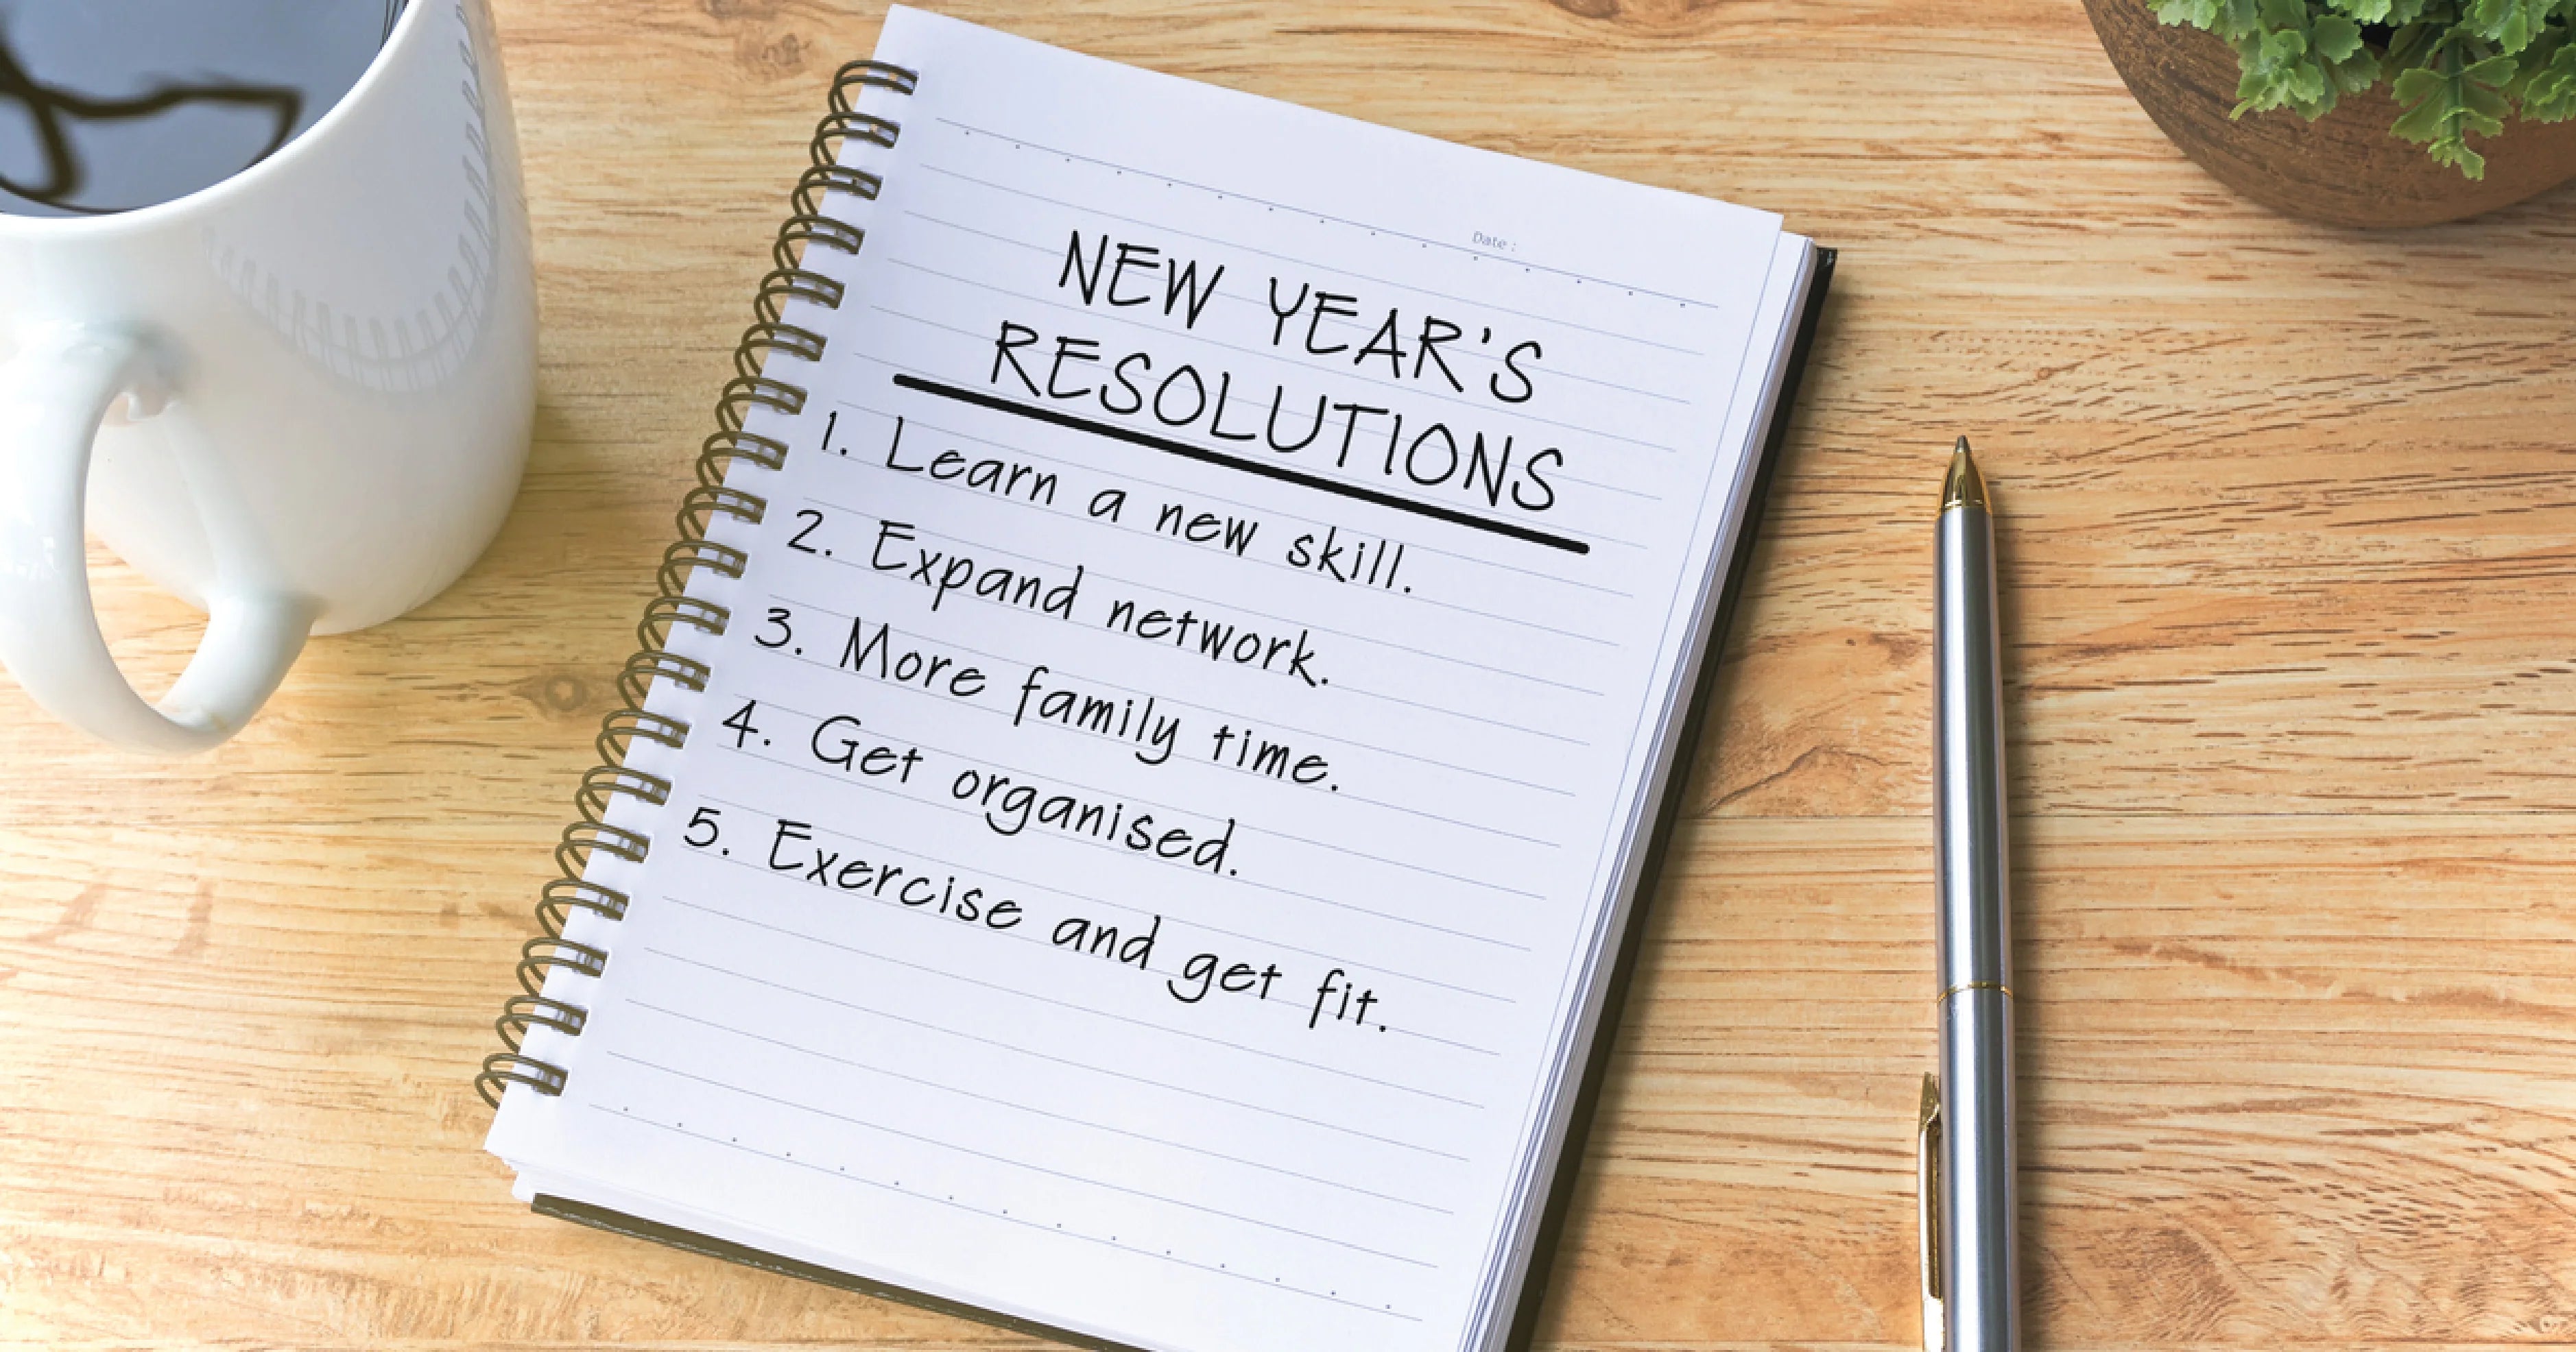 Date :
NEW YEAR'S
RESOLUTIONS
1. Learn a new skill.
2. Expand network.
3. More family time.
4. Get organised.
5. Exercise and get fit.